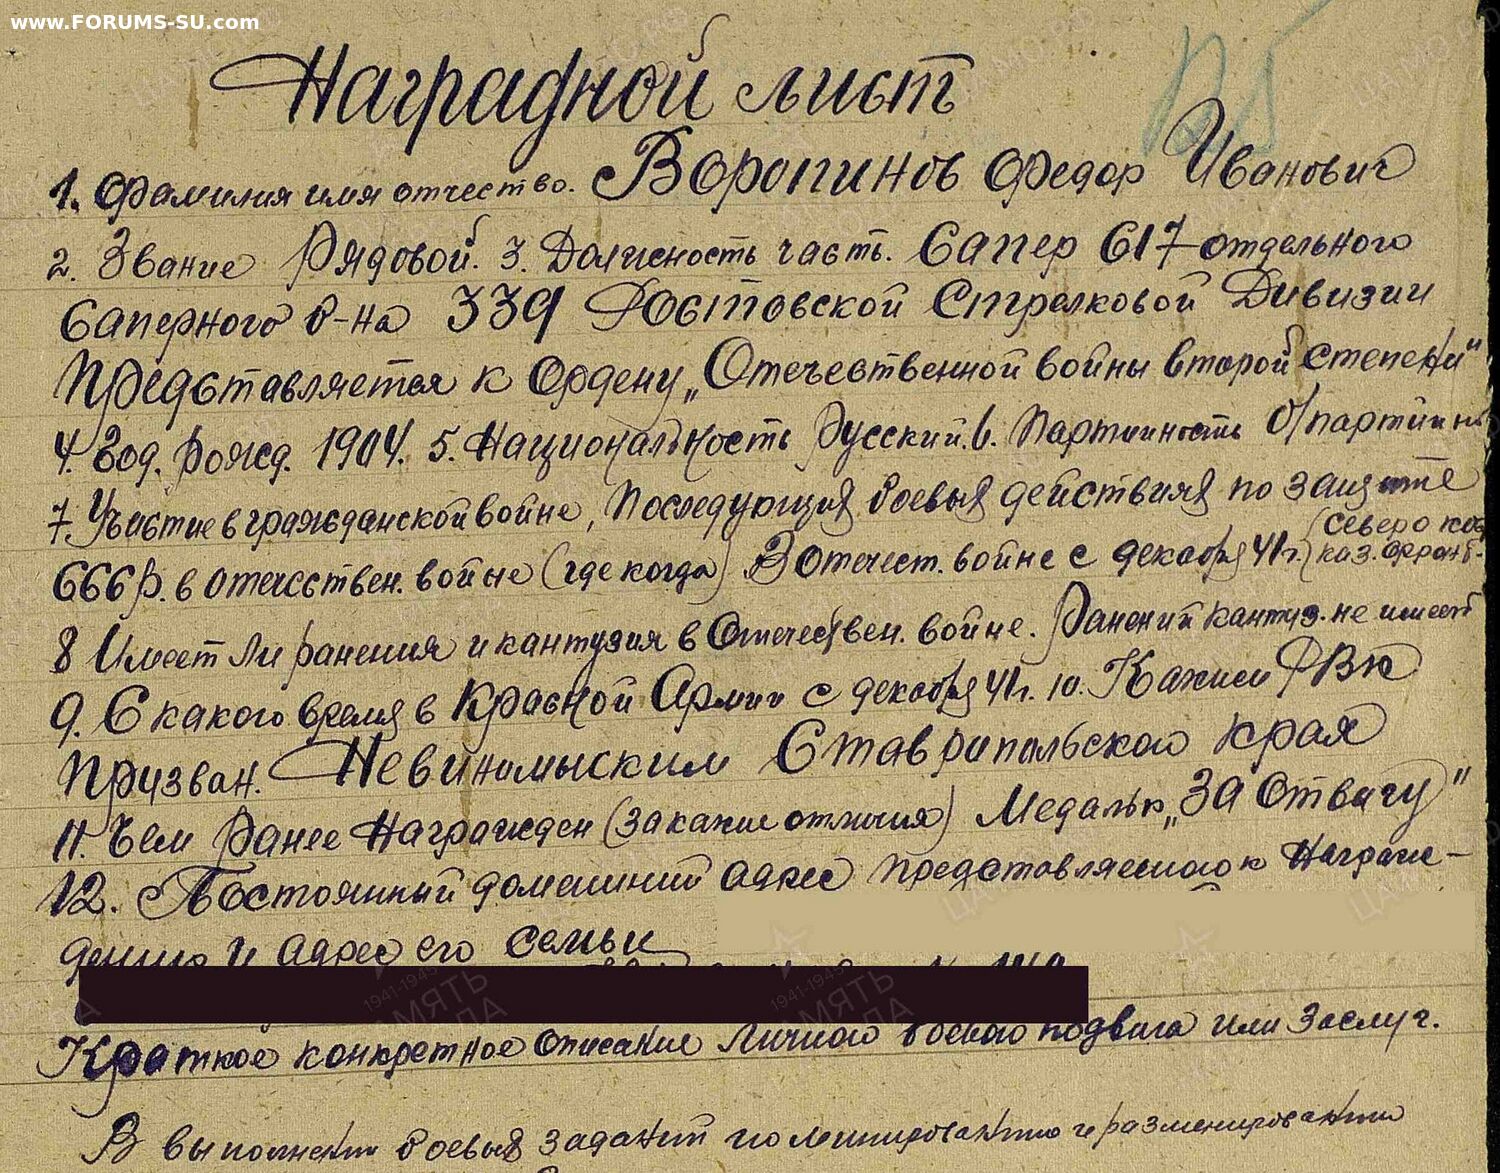 www.FORUMS-SU.com
Наградной лист
1. Фамилия имя отчество. Воропинов Федор Иванович
2. Звание Рядовой. 3. Должность часть. Сапер 617 отдельного
Саперного б-на 339 Ростовской Стрелковой Дивизии
Представляется к Ордену „Отечественной войны второй степени"
4. Год. рожд. 1904. 5. Национальность Русский. 6. Партийность б/партийн
7. Участие в гражданской войне, Последующия боевыя действия по защите
СССР. в отечествен. войне (где когда) В Отечест. войне с декабря 41г. (Северо кав
каз. фронт.
8 Имеет ли ранения и кантузия в Отечествен. войне. Ранений кантуз. не имеет
9. С какого время в Красной Армии с декабря 41г. 10. Каким РВК
Призван. Невиномыским Ставропольского края
11. Чем Ранее Награжден (за какие отличия) Медалью „За Отвагу"
12. Постоянный домашний адрес представляемого к Награж-
дению и адрес его семьи
Краткое конкретное описание личного боевого подвига или заслуг.
В выполнении боевых заданий по минированию и разминированию
ЦАМО.РФ
1941-1945
ПАМЯТЬ